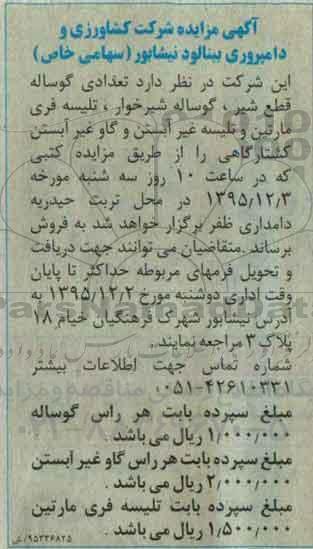 آگهی مزایده شرکت کشاورزی و
دامپروری بینالود نیشابور (سهامی خاص)
این شرکت در نظر دارد تعدادی گوساله
قطع شیر ، گوساله شیرخوار ، تلیسه فری
مارتین و تلیسه غیر آبستن و گاو غیر آبستن
کشتارگاهی را از طریق مزایده کتبی
که در ساعت ۱۰ روز سه شنبه مورخه
۱۳۹۵/۱۲/۳ در محل تربت حیدریه
دامداری ظفر برگزار خواهد شد به فروش
برساند .متقاضیان می توانند جهت دریافت
و تحویل فرمهای مربوطه حداکثر تا پایان
وقت اداری دوشنبه مورخ ۱۳۹۵/۱۲/۲ به
آدرس نیشابور شهرک فرهنگیان خیام ۱۸
پلاک ۳ مراجعه نمایند.
شماره تماس جهت اطلاعات بیشتر
۰۵۱-۴۲۶۱۰۳۳۱
مبلغ سپرده بابت هر راس گوساله
۱/۰۰۰/۰۰۰ ریال می باشد .
مبلغ سپرده بابت هر راس گاو غیر آبستن
۲/۰۰۰/۰۰۰ ریال می باشد .
مبلغ سپرده بابت تلیسه فری مارتین
۱/۵۰۰/۰۰۰ ریال می باشد .
۹۵۳۳۶۸۲۵/ش